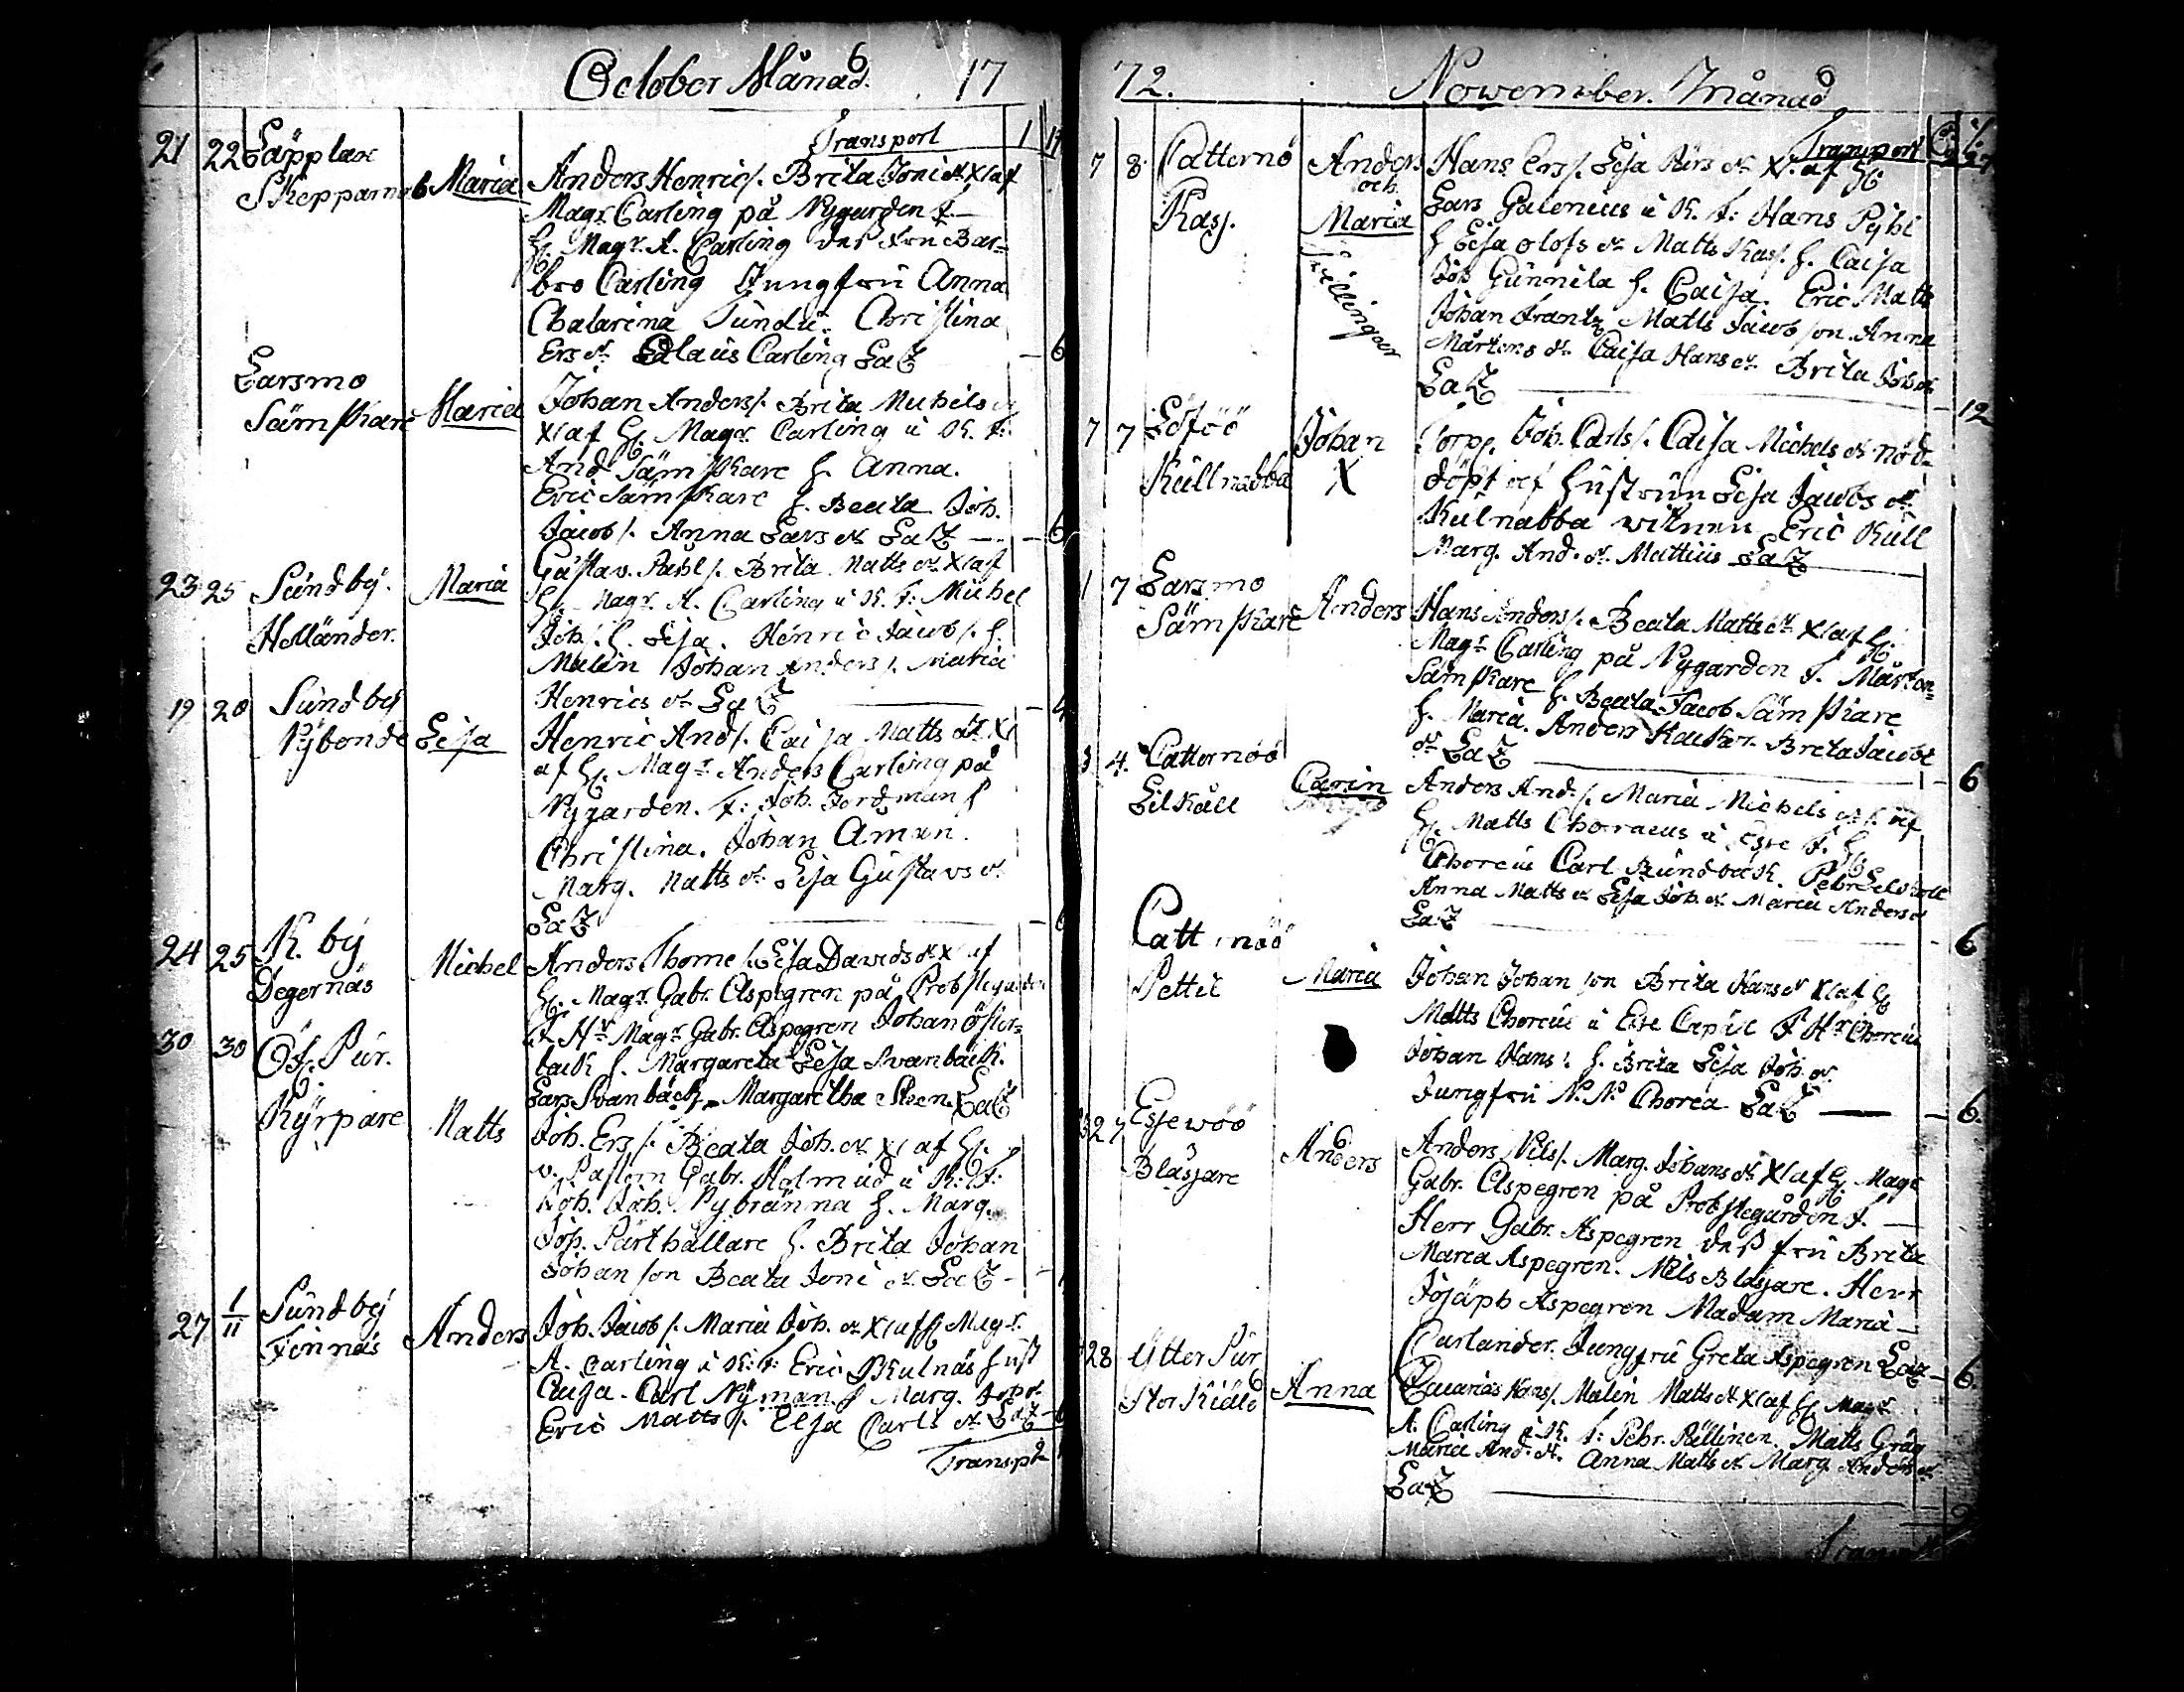 October Månad. 17
Transport
21 22 Läpplax
Skepparnab Maria Anders Henrics. Brita Joni dr X:af
Magr. Carling på Nygården F.
H. Magr. A. Carling des fru Bar=
bro Carling Jungfru Anna
Chatarina Sundu. Christina
Ers dr Olaus Carling LaZ 6
Larsmo
Sämskare Maria Johan Anders/. Brita Michels dr
X:af H. Magr. Carling i K. F:
And Sämskare h. Anna.
Eric Sämskare h. Beata Joh.
Jacob/. Anna Lars dr LaZ 6
23 25 Sundby. Maria Gustav. Påhl/. Brita Matts dr X:af
Helländer. H. Magr. A. Carling i K. F: Michel
Joh/. h. Lisa. Henric Jacob/. h.
Malin Johan Anders/. Maria
Henrics dr LaZ 4
19 20 Sundby
Nybonde Lisa Henric And/. Caisa Matts dr X:
af H. Magr. Anders Carling på
Nygården. F: Joh. Nordman h
Christina. Johan Aman.
Marg. Matts dr Lisa Gustavs dr
LaZ
24 25 K. by
Degernäs Michel Anders Thome/. Lisa Davids dr X af
H. Magr. Gabr. Aspegren på Probstegården
F. Hr Magr Gabr. Aspegren Johan Öster=
back h. Margareta Lisa Svanbäck.
Lars Svanbäck. Margaretha Steen LaZ
30 30 Öst. Pur.
Kyrpare Matts Joh. Ers/. Beata Joh. dr X: af H.
v. Pastorn Gabr. Holmud i K: F:
Joh. Joh. Nybränna h. Marg.
Joh. Pärthållare h. Brita Johan
Johanson Beata Joni dr LaZ
27 1/11 Sundby
Finnäs Anders Joh. Jacob/. Maria Joh. dr X:af H Magr.
A. Carling i K: F: Eric Skulnäs hust
Caisa. Carl Nyman h Marg.
Eric Matts/. Elsa Carls dr LaZ
Transpt

72. November. Månad
Transport
7 8 Catternö Anders Hans Ers/. Lisa Lars dr X: af H.
och
Kass. Maria Lars Galenius i K. F: Hans Pyhl
h Lisa Olofs dr Matts Kass. h. Caisa
Tvillingar Joh Gunnila h. Caisa. Eric Matts
Johan Frantz Matts Jacobson. Anna
Mårtens dr Caisa Hans dr Brita Joh dr
LaZ 12
7 7 Löföö Johan Torp. Joh. Carls/. Caisa Michels dr nöd=
Kullnabba X döpt af hustrun Lisa Jacobs dr
Kulnabba witnen Eric Kull
Marg. And. dr Mattius LaZ
1 7 Larsmo
Sämskare Anders Hans Anders/. Beata Matts dr X:af H.
Magr Carling på Nygården F. Mårten
Sämskare h. Beata Jacob Sämskare
h. Maria. Anders Brita Jacobs
dr LaZ 6
3 4. Catternöö
Lilkåll Carin Anders And./. Maria Michels dr X: af
H. Matts Choræus i Esse F. H
Choreus Carl Sundback. Petr Lilkåll
Anna Matts dr Lisa Joh. dr Maria Anders dr
LaZ 6
Catternöö
Pettil Maria Johan Johanson Brita Hans dr X:af H
Matts Choreus i Esse Capell F Hr Choreus
Johan Hans/. h. Brita Lisa Joh. dr
Jungfru N. N. Chorea LaZ 6.
Essewöö
Blåsjare Anders Anders Nils/. Marg. Johans dr X:af H. Magr
Gabr. Aspegren på Probstegården F.
Herr Gabr. Aspegren des fru Brita
Maria Aspegren. Nils Blåsjare. Herr
Josäph Aspegren Madam Maria
Carlander. Jungfru Greta Aspegren LaZ 6.
28 Ytter Pur
Storkiäld Anna Zacarias Hans/. Malin Matts dr X:af H Magr
A. Carling i K. F: Pehr. Pällinen. Matts Gräg
Maria And. dr. Anna Matts dr Marg Anders dr
LaZ